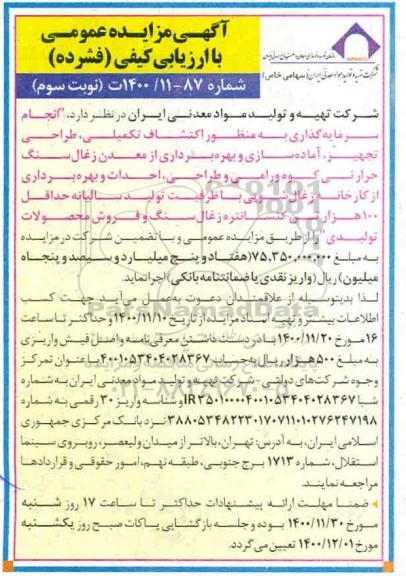 آگهی مزایده عمومی
با ارزیابی کیفی (فشرده)
شماره ۸۷-۱۴۰۰/۱۱ت (نوبت سوم)
شرکت تهیه و تولید مواد معدنی ایران (سهامی خاص)
شرکت تهیه و تولید مواد معدنی ایران در نظر دارد، "انجام
سرمایه‌گذاری به منظور اکتشاف تکمیلی، طراحی
تجهیز، آماده‌سازی و بهره‌برداری از معدن زغال سنگ
حرارتی کوه ورامی و طراحی، احداث و بهره‌برداری
از کارخانه زغال‌شویی با ظرفیت تولید سالیانه حداقل
۱۰۰ هزار تن کنسانتره زغال سنگ و فروش محصولات
تولیدی" را از طریق مزایده عمومی و با تضمین شرکت در مزایده
به مبلغ ۷۵,۳۵۰,۰۰۰,۰۰۰ (هفتاد و پنج میلیارد و سیصد و پنجاه
میلیون) ریال (واریز نقدی یا ضمانتنامه بانکی) اجرا نماید.
لذا بدینوسیله از علاقمندان دعوت به عمل می‌آید جهت کسب
اطلاعات بیشتر و تهیه اسناد مزایده از تاریخ ۱۴۰۰/۱۱/۱۰ و حداکثر تا ساعت
۱۶ مورخ ۱۴۰۰/۱۱/۲۰ با در دست داشتن معرفی‌نامه و اصل فیش واریزی
به مبلغ ۵۰۰ هزار ریال به حساب ۴۰۰۱۰۵۳۴۰۴۰۲۸۳۶۷ با عنوان تمرکز
وجوه شرکت‌های دولتی - شرکت تهیه و تولید مواد معدنی ایران به شماره
شبا و شناسه واریز ۳۰ رقمی به شماره
نزد بانک مرکزی جمهوری
اسلامی ایران، به آدرس: تهران، بالاتر از میدان ولیعصر، روبروی سینما
استقلال، شماره ۱۷۱۳ برج جنوبی، طبقه نهم، امور حقوقی و قراردادها
مراجعه نمایند.
ضمنا مهلت ارائه پیشنهادات حداکثر تا ساعت ۱۷ روز شنبه
مورخ ۱۴۰۰/۱۱/۳۰ بوده و جلسه بازگشایی پاکات صبح روز یکشنبه
مورخ ۱۴۰۰/۱۲/۰۱ تعیین می‌گردد.